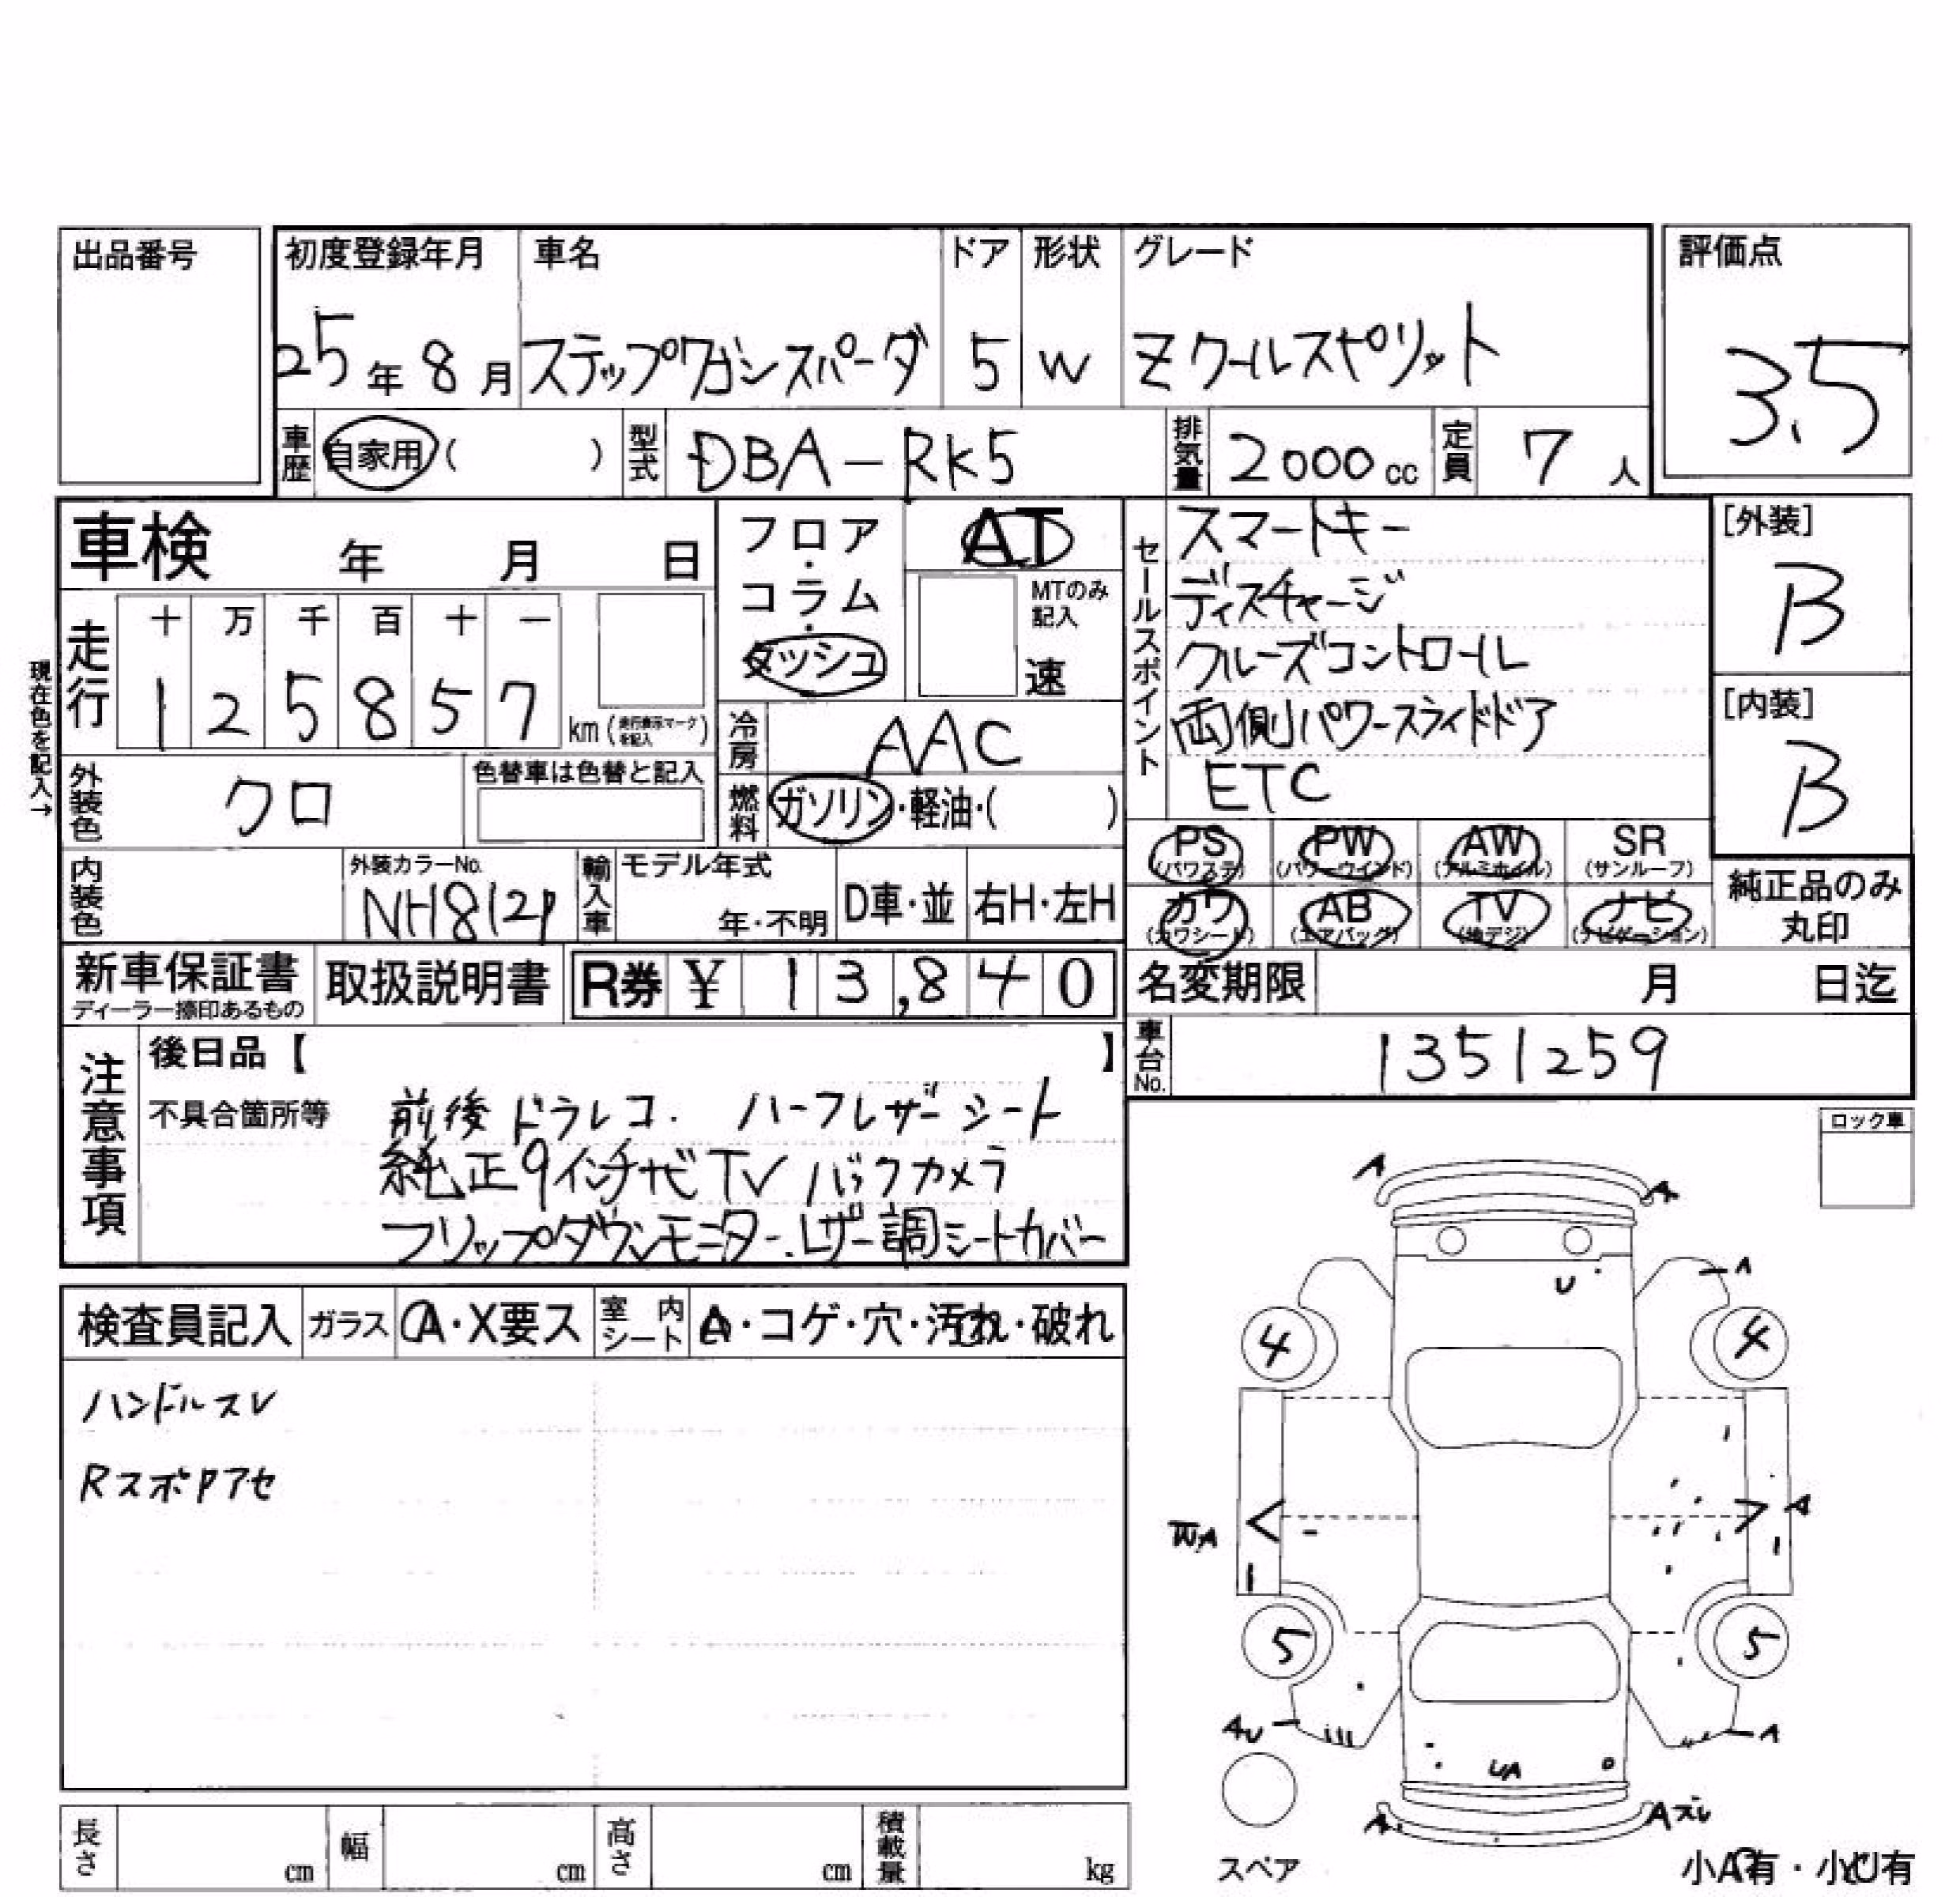 出品番号
初度登録年月 車名 ドア 形状 グレード 評価点
25年8月 ステップワゴンスパーダ 5 W Zクールスピリット 3.5
車歴 自家用( ) 型式 DBA-RK5 排気量 2000cc 定員 7人
車検 年 月 日
フロア・コラム・ダッシュ
AT
MTのみ記入
速
セールスポイント
スマートキー
ディスチャージ
クルーズコントロール
両側パワースライドドア
ETC
[外装]
B
[内装]
B
現在色を記入→
走行 十 万 千 百 十 一
1 2 5 8 5 7 km(走行表示マークを記入)
冷房 AAC
外装色 クロ 色替車は色替と記入
燃料 ガソリン・軽油・( )
PS(パワステ) PW(パワーウインド) AW(アルミホイル) SR(サンルーフ)
カワ(カワシート) AB(エアバッグ) TV(地デジ) ナビ(ナビゲーション)
純正品のみ丸印
内装色 外装カラーNo. NH812P 輸入車 モデル年式 年・不明 D車・並 右H・左H
新車保証書 ディーラー捺印あるもの 取扱説明書 R券 ¥ 13,840
名変期限 月 日迄
車台No. 1351259
注意事項
後日品【 】
不具合箇所等 前後ドラレコ. ハーフレザーシート
純正9インチナビTV バックカメラ
フリップダウンモニター.レザー調シートカバー
ロック車
検査員記入 ガラス A・X要ス 室内シート A・コゲ・穴・汚れ・破れ
ハンドルスレ
RスポPアセ
A A
U A
4 4
WA A
5 5
AU A
UA
A Aズレ
スペア
小A有・小U有
長さ cm 幅 cm 高さ cm 積載量 kg